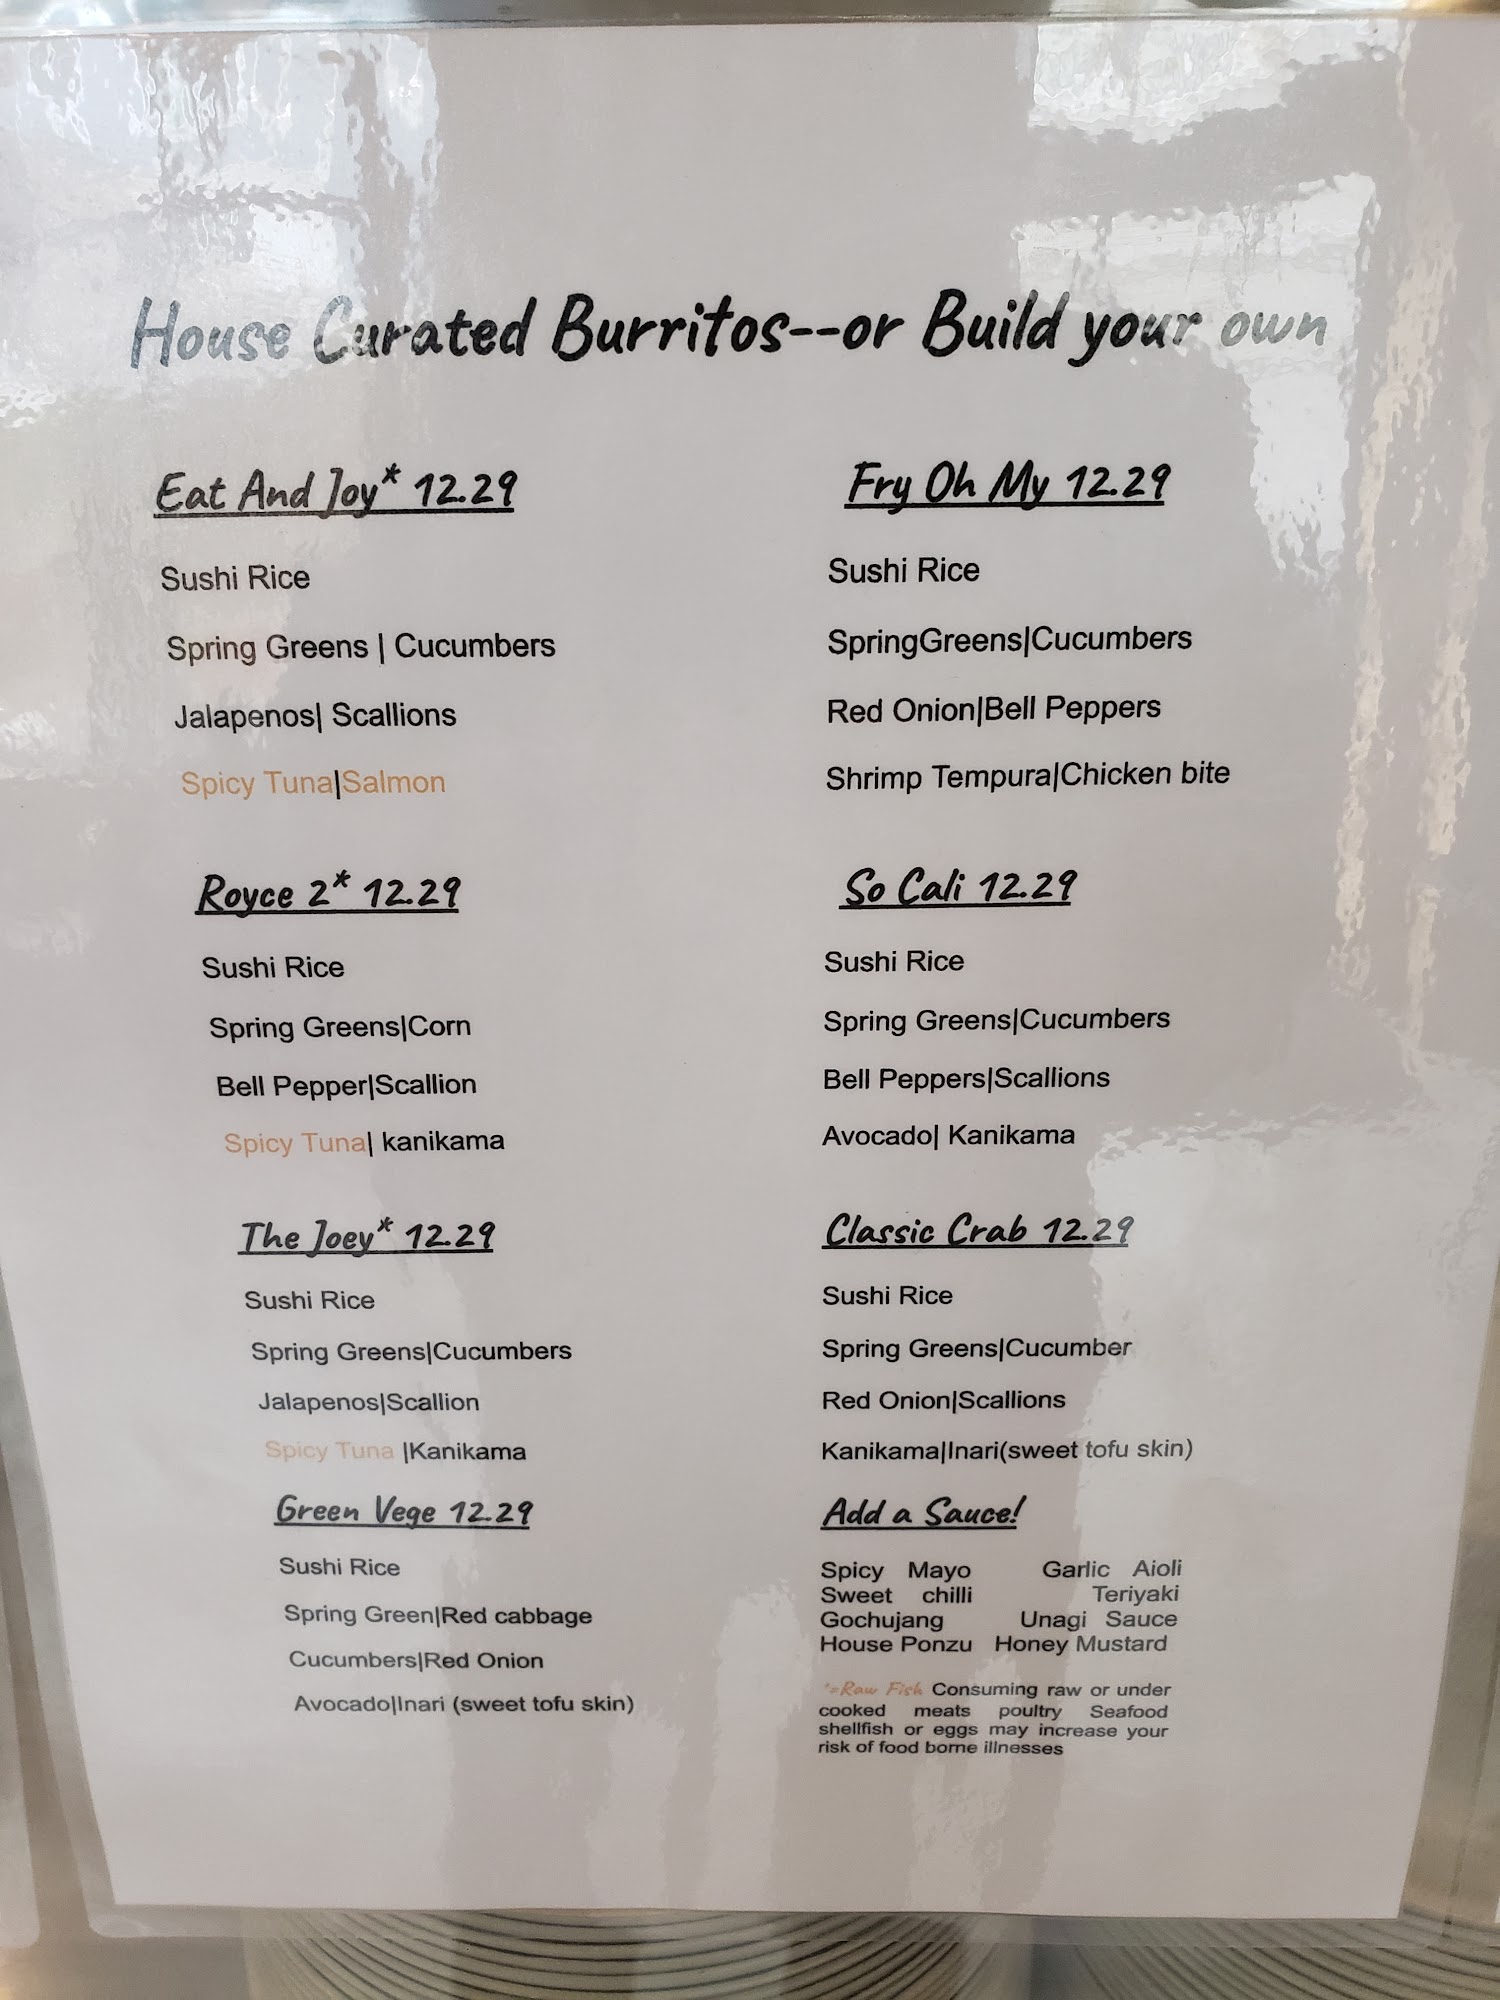 House Curated Burritos--or Build your own
Eat And Joy* 12.29
Sushi Rice
Spring Greens | Cucumbers
Jalapenos| Scallions
Spicy Tuna|Salmon
Royce 2* 12.29
Sushi Rice
Spring Greens|Corn
Bell Pepper|Scallion
Spicy Tuna| kanikama
The Joey* 12.29
Sushi Rice
Spring Greens|Cucumbers
Jalapenos|Scallion
Spicy Tuna |Kanikama
Green Vege 12.29
Sushi Rice
Spring Green|Red cabbage
Cucumbers|Red Onion
Avocado|Inari (sweet tofu skin)
Fry Oh My 12.29
Sushi Rice
SpringGreens|Cucumbers
Red Onion|Bell Peppers
Shrimp Tempura|Chicken bite
So Cali 12.29
Sushi Rice
Spring Greens|Cucumbers
Bell Peppers|Scallions
Avocado| Kanikama
Classic Crab 12.29
Sushi Rice
Spring Greens|Cucumber
Red Onion|Scallions
Kanikama|Inari(sweet tofu skin)
Add a Sauce!
Spicy Mayo Garlic Aioli
Sweet chilli Teriyaki
Gochujang Unagi Sauce
House Ponzu Honey Mustard
*=Raw Fish Consuming raw or under
cooked meats poultry Seafood
shellfish or eggs may increase your
risk of food borne illnesses